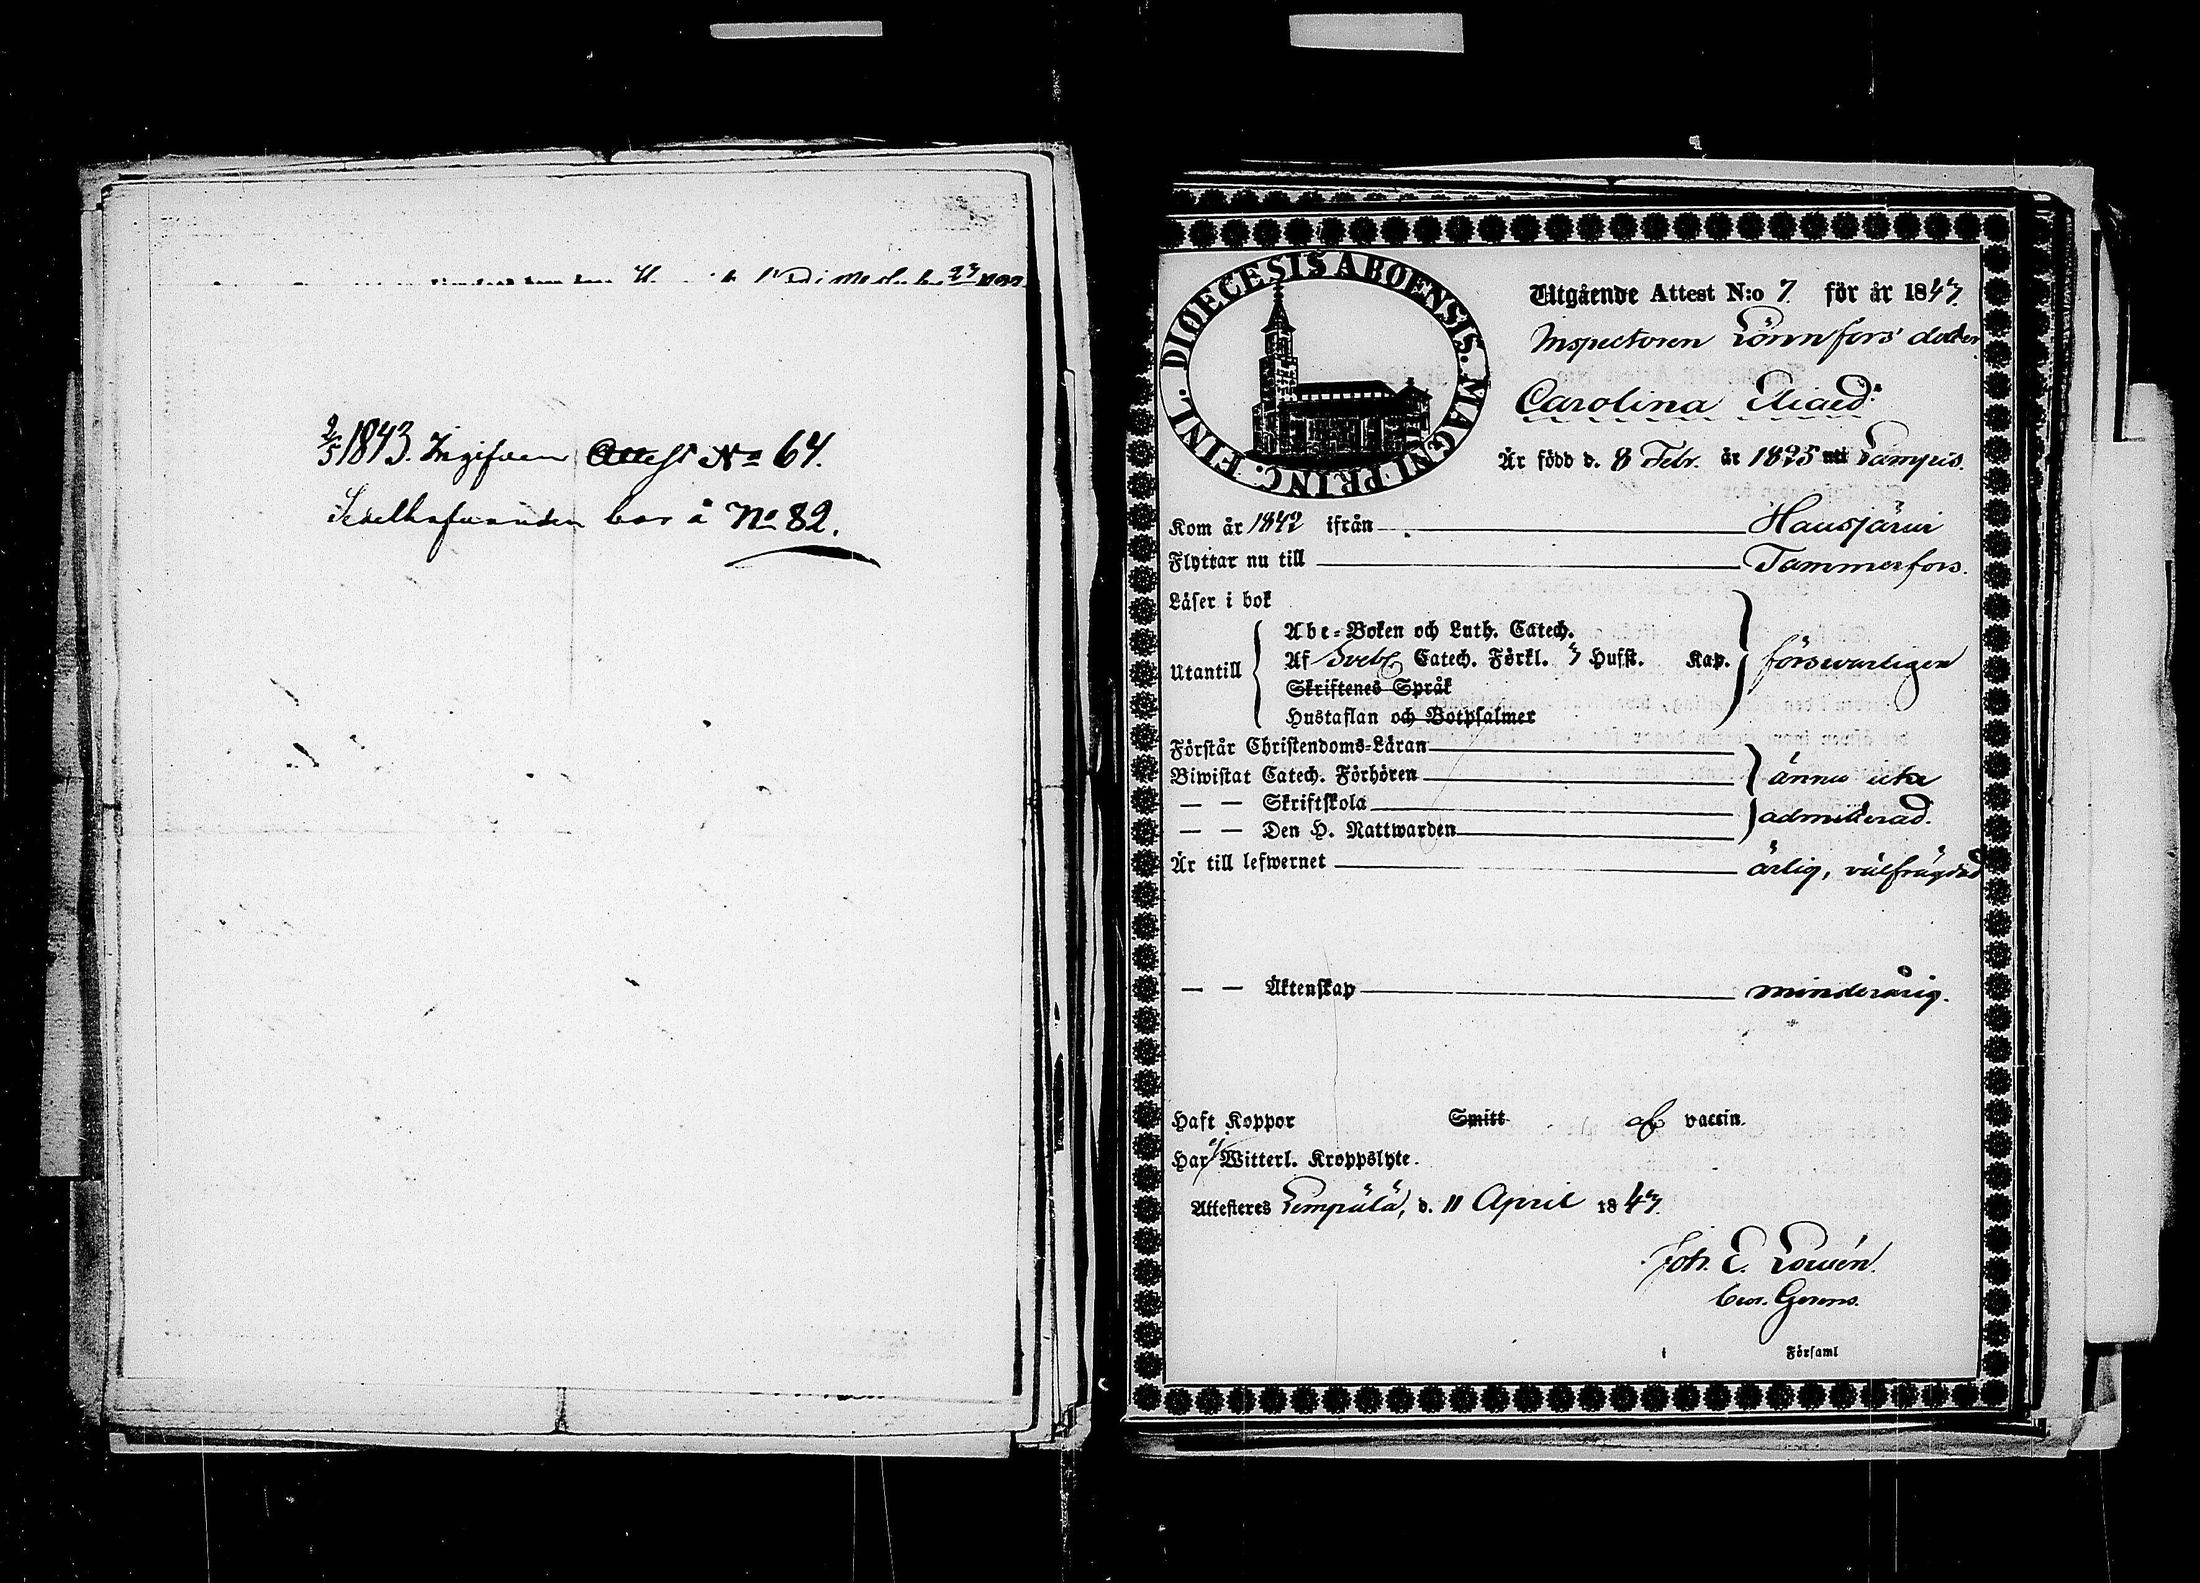 2/5 1843. Ingifven Attest No 64.
Sedelhafvanden bor å No 82.
FINL. DIOECESIS ABOENSIS. MAGNI PRINC.
Utgående Attest N:o 7 för år 1843.
Inspectoren Lönnfors' dotter
Carolina
Är född d. 8 Febr. år 1825 uti Lampis.
Kom år 1842 ifrån Hausjärvi
Flyttar nu till Tammerfors.
Läser i bok
Utantill
Abc-Boken och Luth. Catech.
Af Sveb. Catech. Förkl. 3 Hufst. Kap. försvarligen
Skriftenes Språk
Hustaflan och Botpsalmer
Förstår Christendoms-Läran
Biwistat Catech. Förhören ännu icke
— — Skriftskola admitterad.
— — Den H. Nattwarden
Är till lefwernet ärlig, välfrägdad
— — Äktenskap minderårig.
Haft Koppor Smitt af vaccin.
Har ej Witterl. Kroppslyte.
Attesteres Lempälä, d. 11 April 1843.
Joh. E. Lowén.
i Församl